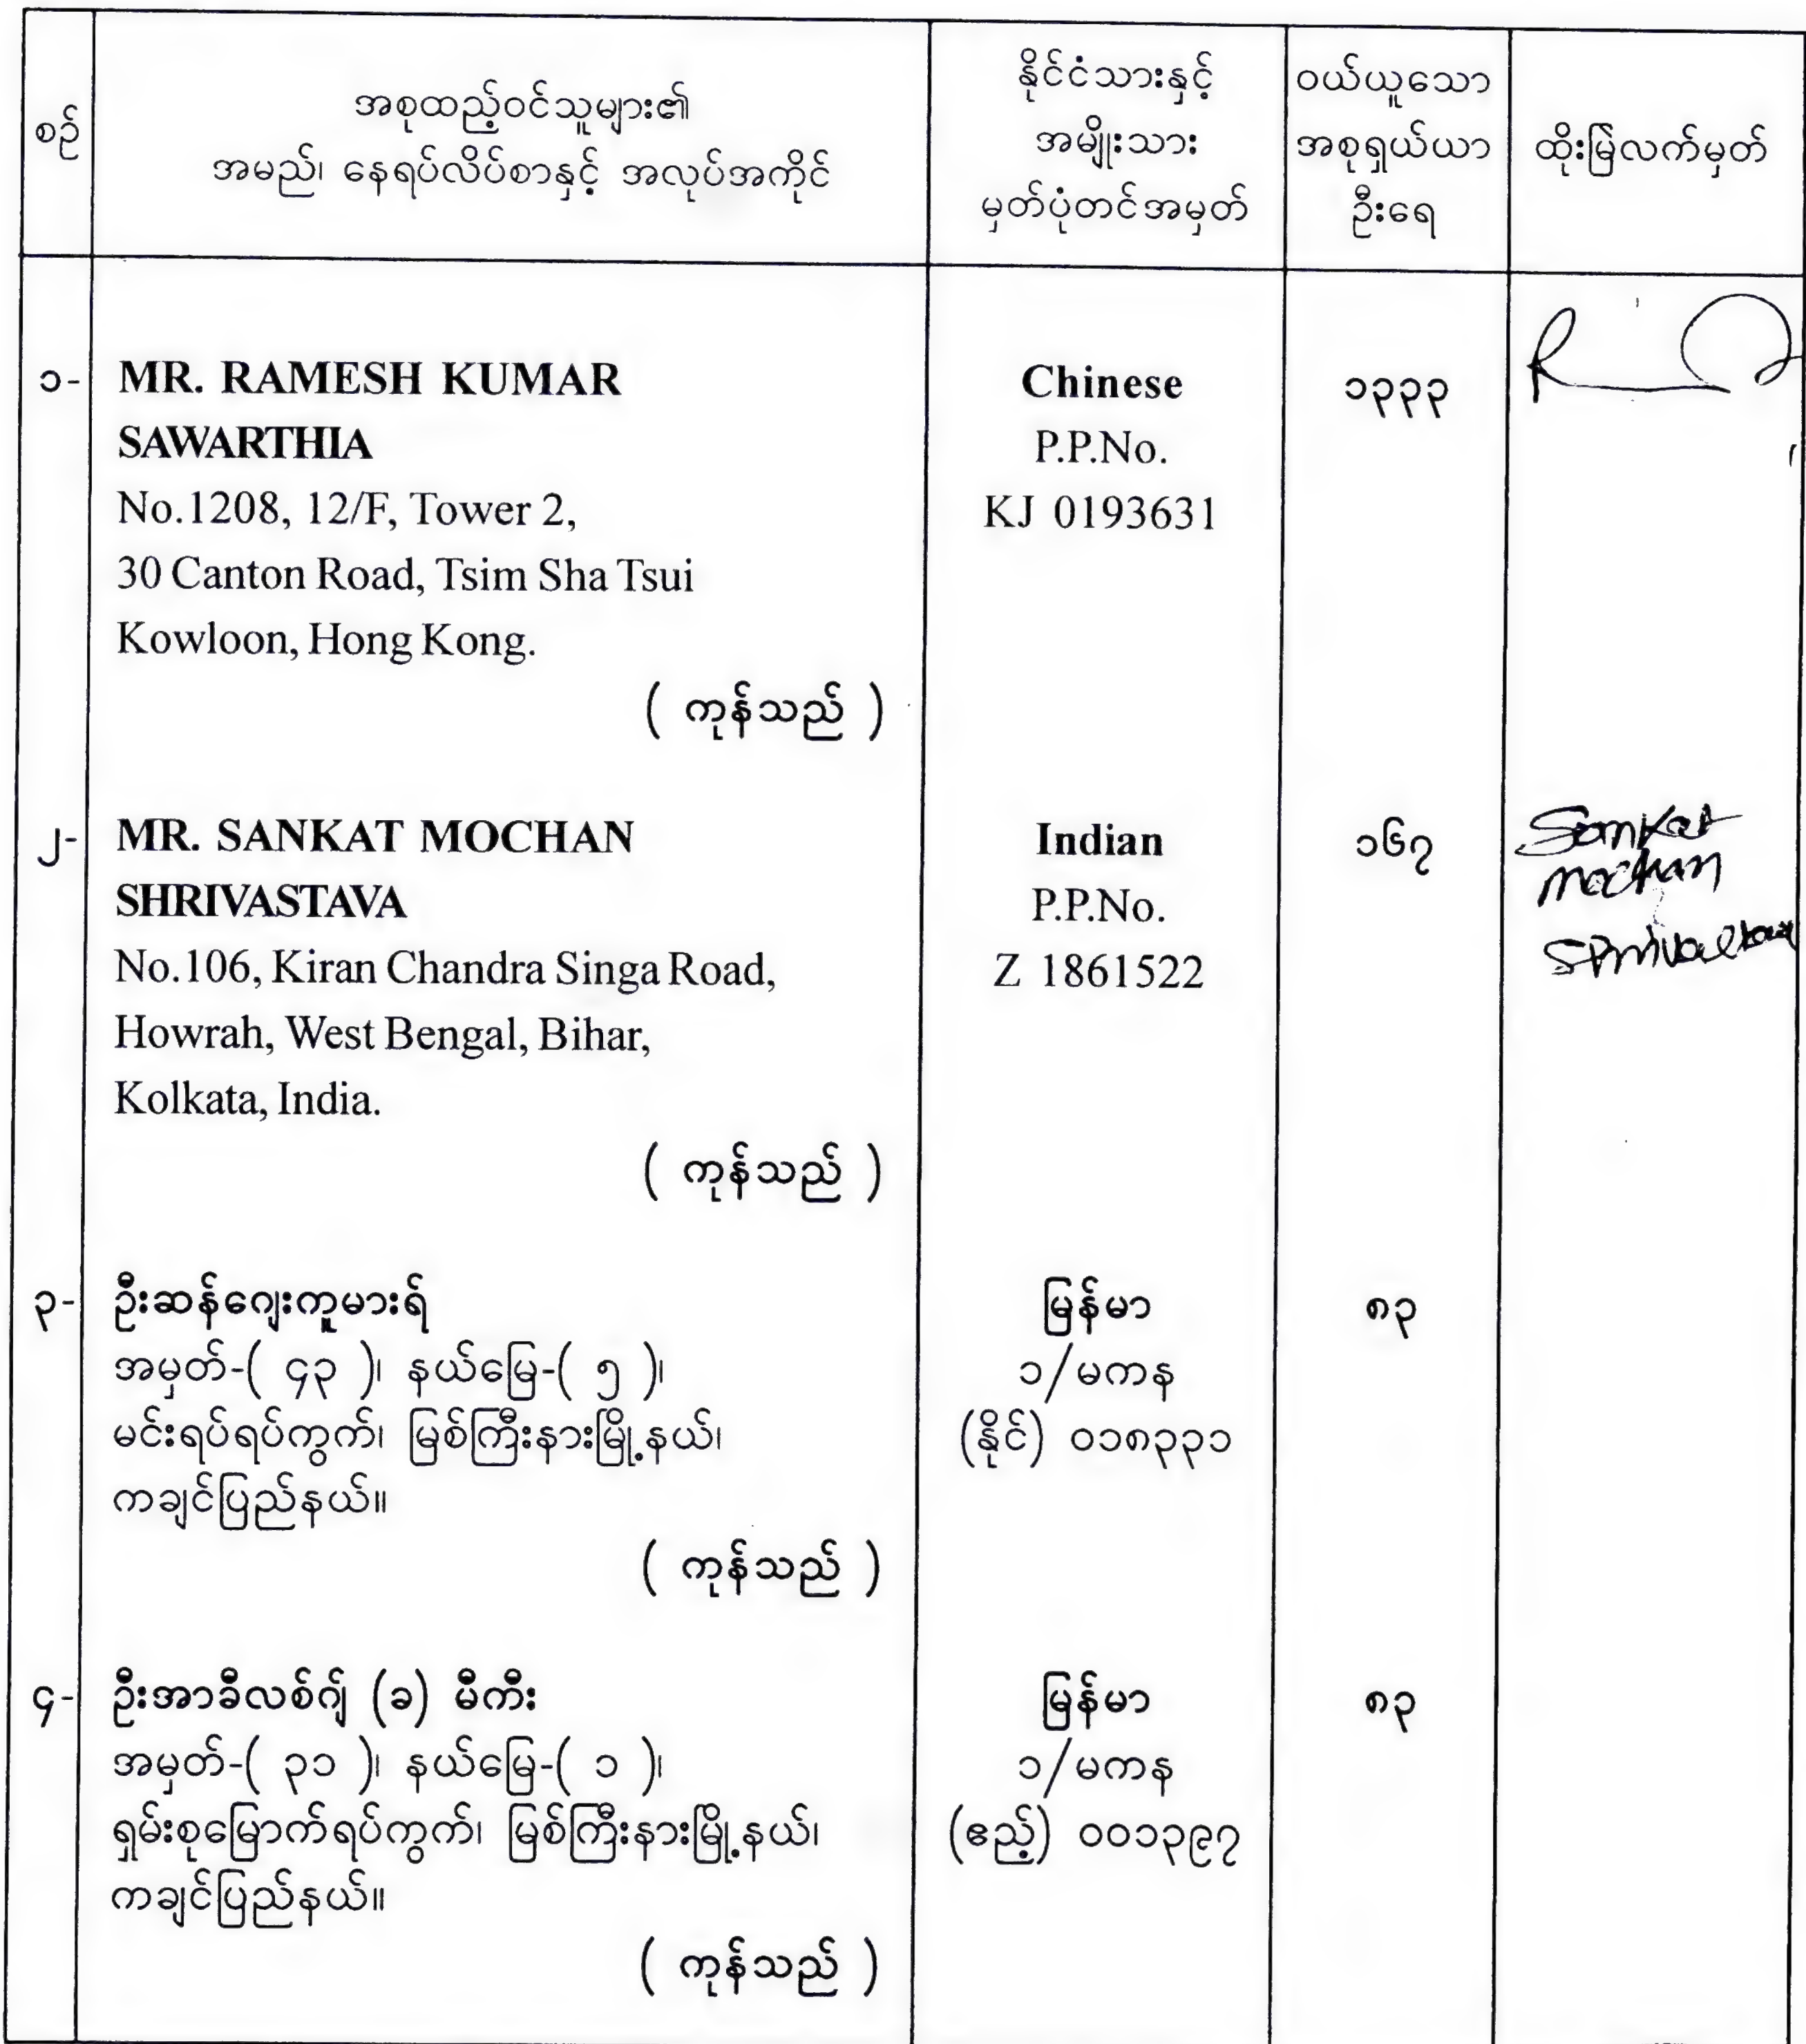 စဉ်
အစုထည့်ဝင်သူများ၏
အမည်၊ နေရပ်လိပ်စာနှင့် အလုပ်အကိုင်
နိုင်ငံသားနှင့်
အမျိုးသား
မှတ်ပုံတင်အမှတ်
ဝယ်ယူသော
အစုရှယ်ယာ
ဦးရေ
ထိုးမြဲလက်မှတ်
၁-
MR. RAMESH KUMAR
SAWARTHIA
No.1208, 12/F, Tower 2,
30 Canton Road, Tsim Sha Tsui
Kowloon, Hong Kong.
( ကုန်သည် )
Chinese
P.P.No.
KJ 0193631
၁၃၃၃
၂-
MR. SANKAT MOCHAN
SHRIVASTAVA
No.106, Kiran Chandra Singa Road,
Howrah, West Bengal, Bihar,
Kolkata, India.
( ကုန်သည် )
Indian
P.P.No.
Z 1861522
၁၆၇
Sankat
mochan
Shrivastava
၃-
ဦးဆန်ဂျေးကူမားရ်
အမှတ်-( ၄၃ )၊ နယ်မြေ-( ၅ )၊
မင်းရပ်ရပ်ကွက်၊ မြစ်ကြီးနားမြို့နယ်၊
ကချင်ပြည်နယ်။
( ကုန်သည် )
မြန်မာ
၁/မကန
(နိုင်) ၀၁၈၃၃၁
၈၃
၄-
ဦးအာခီလစ်ဂျ် (ခ) မီကီး
အမှတ်-( ၃၁ )၊ နယ်မြေ-( ၁ )၊
ရှမ်းစုမြောက်ရပ်ကွက်၊ မြစ်ကြီးနားမြို့နယ်၊
ကချင်ပြည်နယ်။
( ကုန်သည် )
မြန်မာ
၁/မကန
(ဧည့်) ၀၀၁၃၉၇
၈၃